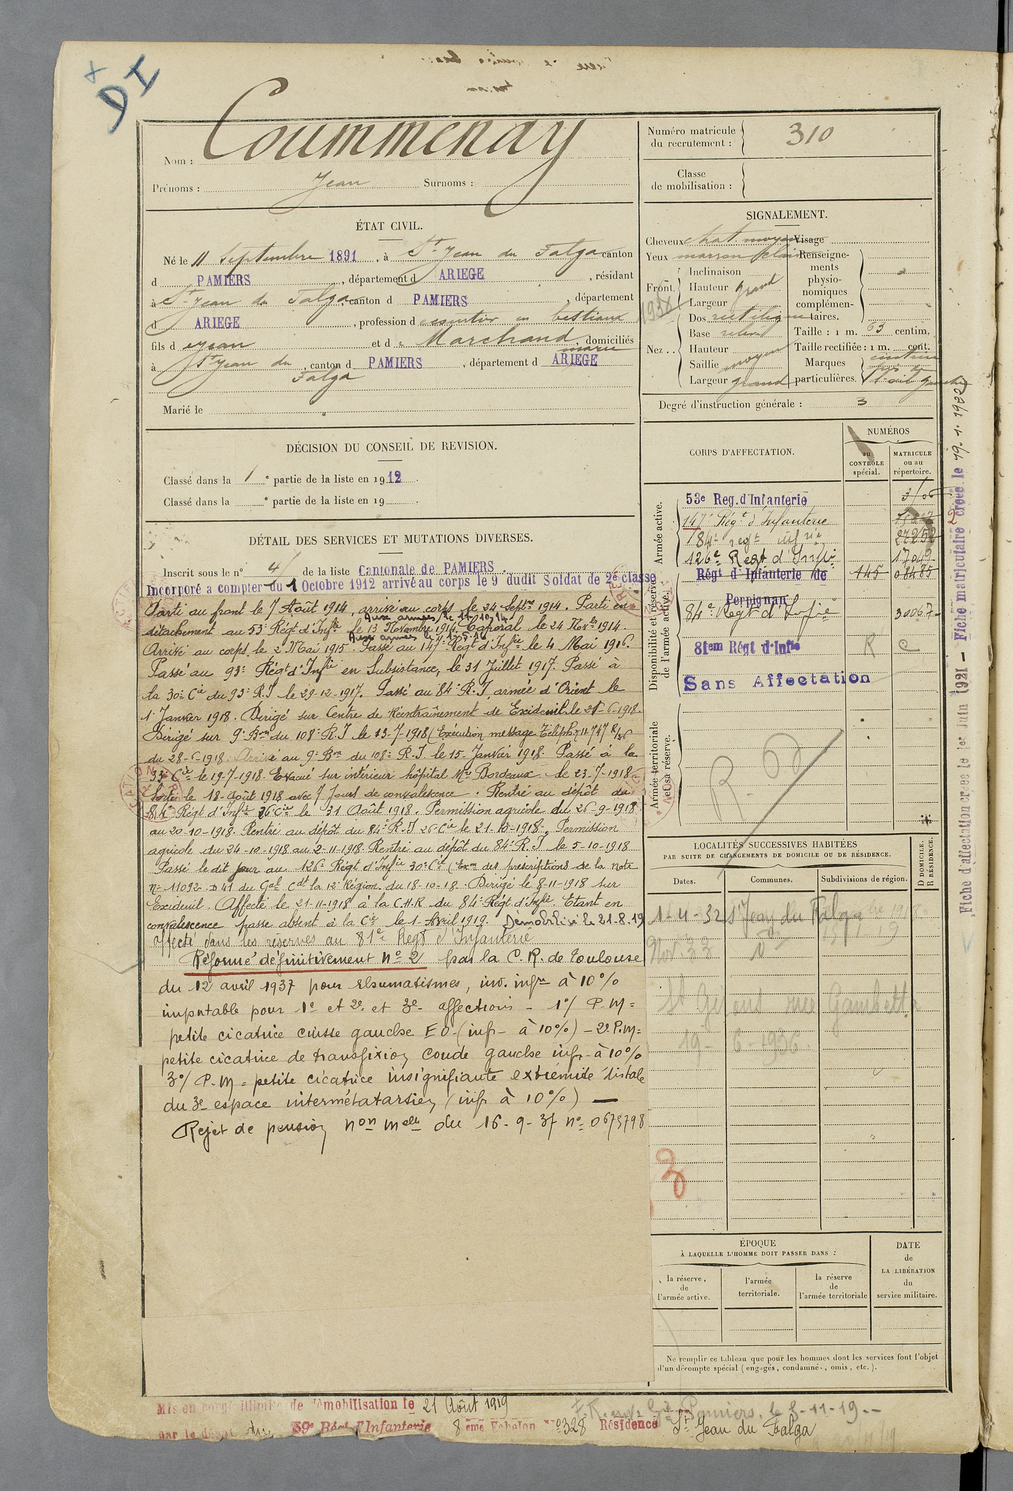 DI
Nom : Coummenay
Prénoms : Jean Surnoms :
ÉTAT CIVIL.
Né le 11 Septembre 1891, à St Jean du Falga canton
d PAMIERS, département d ARIEGE, résidant
à St Jean du Falga canton d PAMIERS département
d ARIEGE, profession d en bestiaux
fils d et d e Marchand marie, domiciliés
à St Jean du Falga, canton d PAMIERS, département d ARIEGE
Marié le
DÉCISION DU CONSEIL DE REVISION.
Classé dans la 1 e partie de la liste en 1912.
Classé dans la e partie de la liste en 19
DÉTAIL DES SERVICES ET MUTATIONS DIVERSES.
Inscrit sous le n° 4 de la liste Cantonale de PAMIERS.
Incorporé a compter du 1 Octobre 1912 arrivé au corps le 9 dudit Soldat de 2e classe
Parti au front le 7 Août 1914, arrivé au corps le 24 Septre 1914. Parti en
détachement au 53e Régt d'Inftie le 13 Novembre 1914. Caporal le 24 Novbre 1914.
Arrivé au corps le 2 Mai 1915. Passé au 147e Régt d'Inftie le 4 Mai 1916.
Passé au 93e Régt d'Inf en Subsistance, le 31 Juillet 1917. Passé à
la 30e Cie du 93e R.I le 29-12-1917. Passé au 84e R.I armée d'Orient le
1 Janvier 1918. Dirigé sur Centre de Réentraînement de Excideuil le 28-6-1918
Dirigé sur 9e Bon du 108e R.I le 13-7-1918 (Exécution message Téléph
du 28-6-1918. Arrivé au 9e Bon du 108e R.I le 15 Janvier 1918. Passé à la
33e Cie le 19-7-1918. Evacué sur intérieur hôpital Bordeaux le 23-7-1918
Sorti le 18-Août 1918 avec 7 jours de convalescence. Rentré au dépôt du
84e Régt d'Inftie 26 Cie le 31 Août 1918. Permission agricole du 26-9-1918
au 20-10-1918. Rentré au dépôt du 84e R.I 26 Cie le 21-10-1918. Permission
agricole du 24-10-1918 au 2-11-1918. Rentré au dépôt du 84e R.I. le 5-10-1918
Passé le dit jour au 126e Régt d'Inftie 30e Cie (Exon des prescriptions de la note
N° 11092-D41 du Gal Cdt la 12e Région du 18-10-18. Dirigé le 8-11-1918 sur
Excideuil. Affecté le 21-11-1918 à la C.H.R. du 84e Régt d'Inftie. Etant en
convalescence passe absent à la Cie le 1 Avril 1919. Démobilisé le 21.8.19
affecté dans les réserves au 81e Regt d'Infanterie
Réformé définitivement N° 2 par la C.R. de Toulouse
du 12 avril 1937 pour rhumatismes, inv. infre à 10%
imputable pour 1e et 2e et 3e affections - 1°/ P.M =
petite cicatrice cuisse gauche EO (infre à 10%) - 2e P.M =
petite cicatrice de transfixion coude gauche infr. à 10%
3°/ P.M = petite cicatrice insignifiante extrémité distale
du 3e espace intermétatarsien (infr à 10%) —
Rejet de pension non melle du 16-9-37 n° 0675798
Numéro matricule du recrutement : 310
Classe de mobilisation :
SIGNALEMENT.
Cheveux chat. moyen Visage
Yeux marron clair
Front. Inclinaison
Hauteur grand
Largeur
Nez. . Dos rectiligne
Base
Hauteur
Saillie moyen
Largeur grand
Renseignements physionomiques complémentaires.
Taille : 1 m. 63 centim.
Taille rectifiée : 1 m. cent.
Marques particulières.
Degré d'instruction générale : 3
CORPS D'AFFECTATION.
NUMÉROS
AU CONTRÔLE spécial.
MATRICULE ou au répertoire.
Armée active.
53e Reg. d'Infanterie
147e Régt d'Infanterie
184e regt infrie
126e Régt d'Inftie
Disponibilité et réserve de l'armée active.
Régt d'Infanterie de Perpignan 145
84e Regt d'Infie
81em Régt d'Infie R
Sans Affectation
Armée territoriale et sa réserve.
LOCALITÉS SUCCESSIVES HABITÉES
PAR SUITE DE CHANGEMENTS DE DOMICILE OU DE RÉSIDENCE.
Dates. Communes. Subdivisions de région. D DOMICILE. R RÉSIDENCE.
1-4-32 St Jean du Falga
Nov. 33
St Girons rue Gambetta
19-6-1936
3
ÉPOQUE
À LAQUELLE L'HOMME DOIT PASSER DANS :
la réserve de l'armée active.
l'armée territoriale.
la réserve de l'armée territoriale
DATE de LA LIBÉRATION du service militaire.
Ne remplir ce tableau que pour les hommes dont les services font l'objet
d'un décompte spécial (engagés, condamnés, omis, etc.).
Fiche d'affectation créée le 1er Juin 1921 - Fiche matriculaire créée le 19.1.1922
Mis en congé illimité de démobilisation le 21 Août 1919
par le dépôt du 59e Régt d'Infanterie 8 ème Echelon N° 328 Résidence St Jean du Falga
Pamiers, le 8-11-19